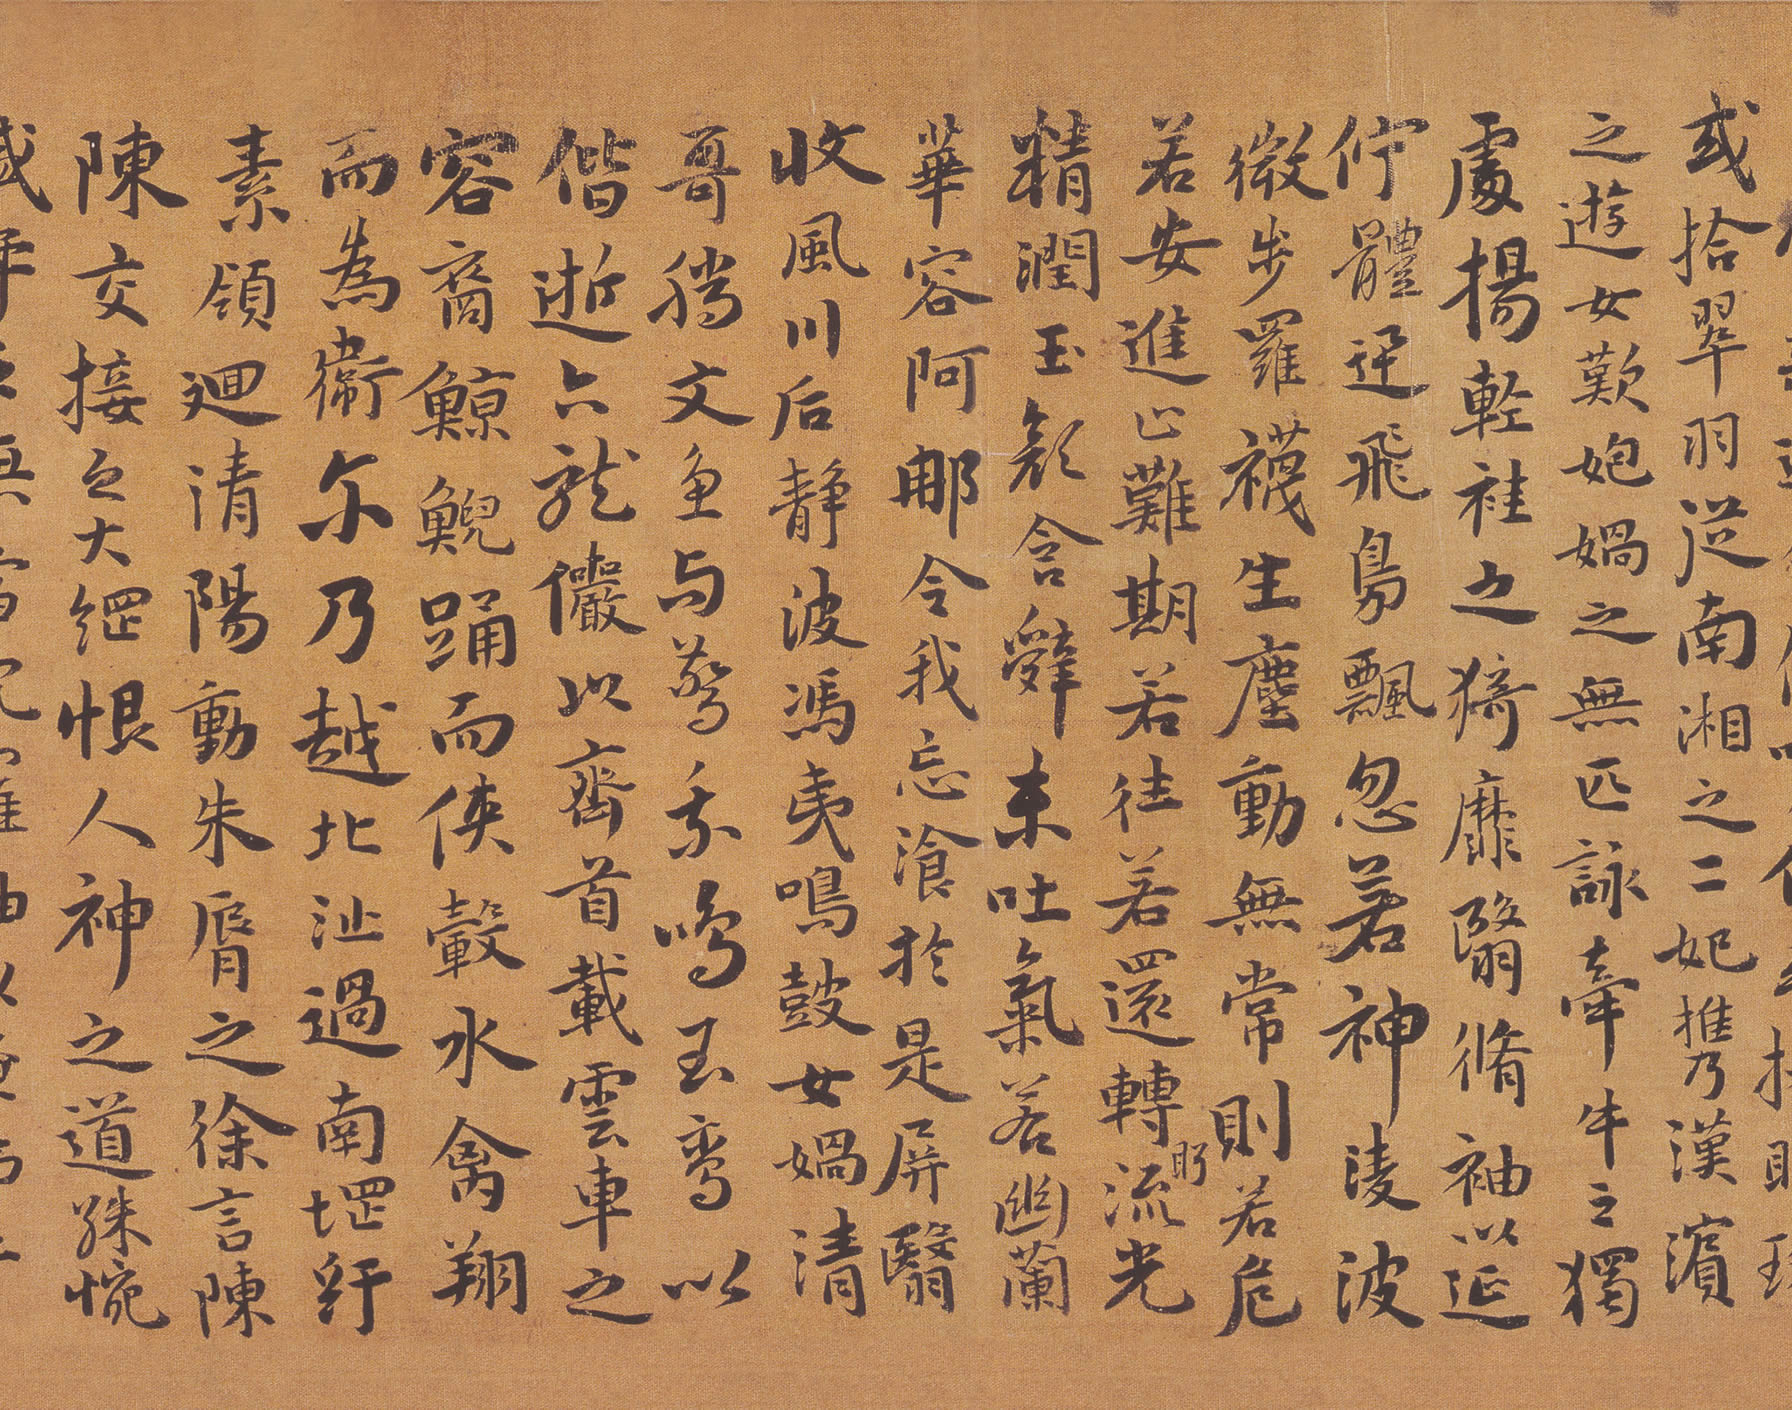 或拾翠羽從南湘之二妃攜漢濱
之遊女歎㚿媧之無匹詠牽牛之獨
處揚輕袿之猗靡翳脩袖以延
佇體迅飛鳧飄忽若神淩波
微步羅襪生塵動無常則若危
若安進止難期若往若還轉眄流光
精潤玉顏含辭未吐氣若幽蘭
華容阿那令我忘飡於是屏翳
收風川后靜波馮夷鳴鼓女媧清
哥騰文魚与驚乘鳴玉鸞以
偕逝六龍儼以齊首載雲車之
容裔鯨鯢踊而俠轂水禽翔
而為衛尓乃越北沚過南堽紆
素領迴清陽動朱脣之徐言陳
陳交接之大綱恨人神之道殊惋